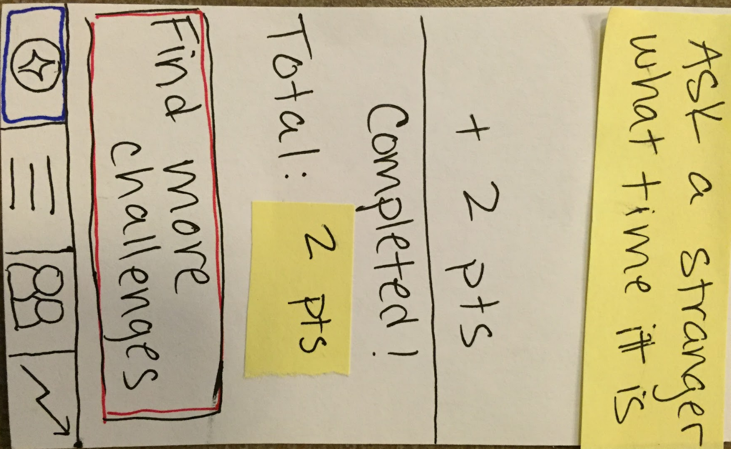 Ask a stranger
what time it is
+ 2 pts
Completed!
Total: 2 pts
Find more
challenges